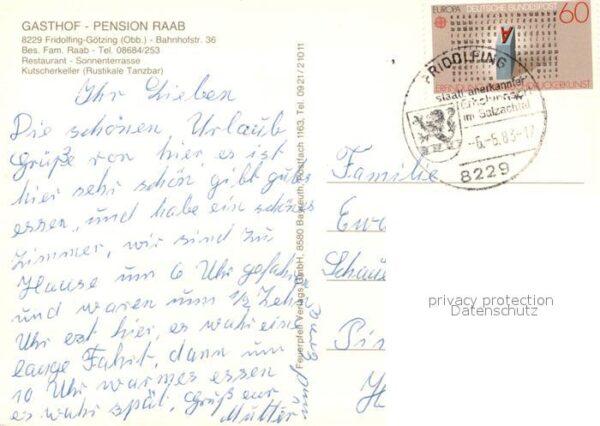 GASTHOF - PENSION RAAB
8229 Fridolfing-Götzing (Obb.) - Bahnhofstr. 36
Bes. Fam. Raab - Tel. 08684/253
Restaurant - Sonnenterrasse
Kutscherkeller (Rustikale Tanzbar)
Ihr Lieben
Die schönen Urlaub
Grüße von hier, es ist
hier sehr schön gibt gutes
essen, und habe ein schönes
Zimmer, wir sind zu
Hause um 6 Uhr gefahren
und waren um 1/2 Zehn
Uhr est hier, es wahr eine
lange Fahrt, dann um
10 Uhr warmes essen
es wahr spät, Grüß eur
Mutter und Erna
Feuerpfeil Verlags GmbH, 8580 Bayreuth, Postfach 1163, Tel. 09 21 / 2 10 11
EUROPA DEUTSCHE BUNDESPOST
60
FRIDOLFING
staatl. anerkannter
Erholungsort
im Salzachtal
-6.-5.83-17
8229
Familie
Pi
privacy protection
Datenschutz